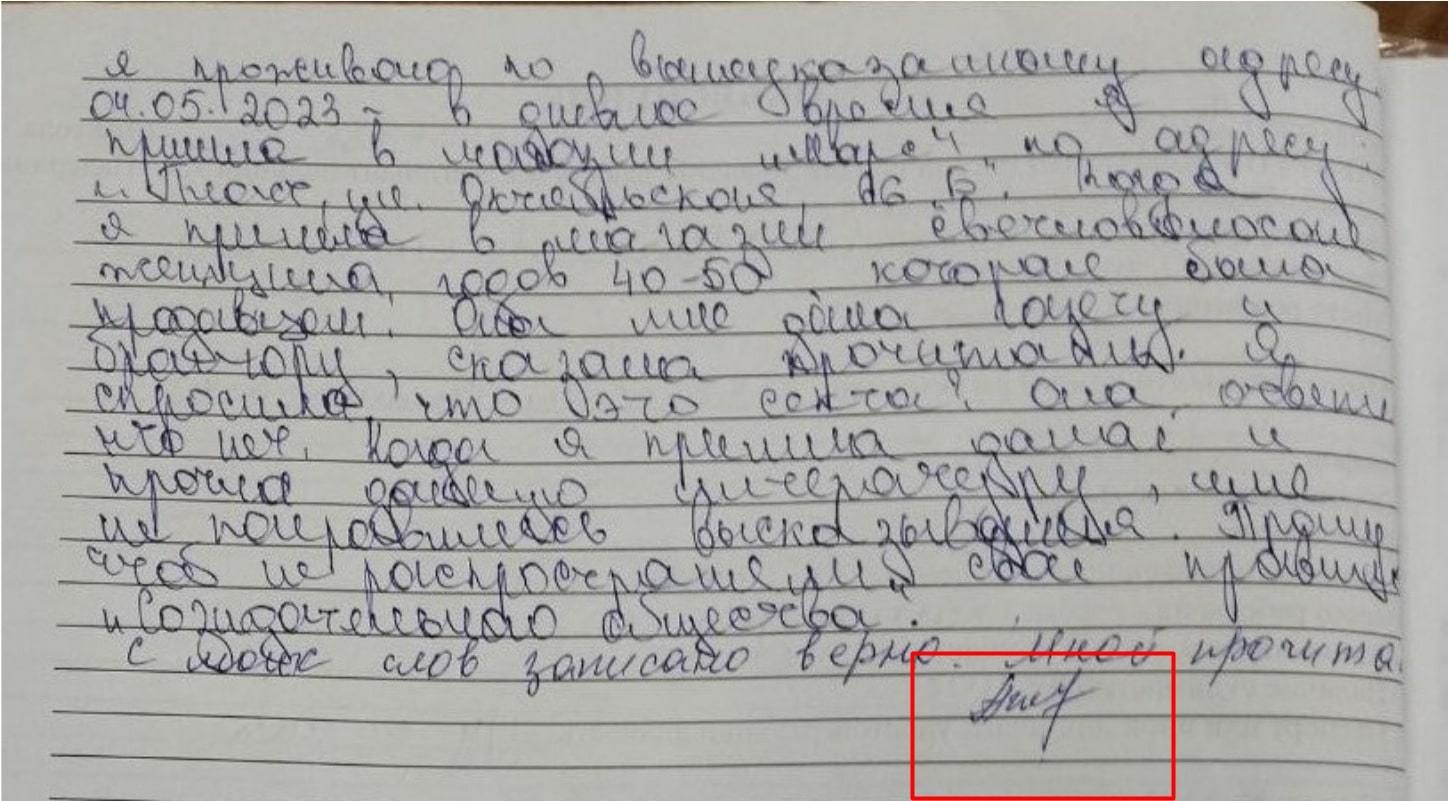 я проживаю по вышеуказанному адресу
04.05.2023 г в дневное время я
пришла в магазин "Мария" по адресу:
ул. Октябрьская, 16 "Б". Когда
я пришла в магазин светловолосая
женщина, годов 40-50 которая была
продавцом. Она мне дала газету и
брошюру, сказала прочитать. Я
спросила, что это секта? Она ответи
что нет. Когда я пришла домой и
прочла данную литературу, мне
не понравились высказывания. Прошу
чтоб не распространяли свои правила
"Созидательного общества".
С моих слов записано верно. Мной прочита